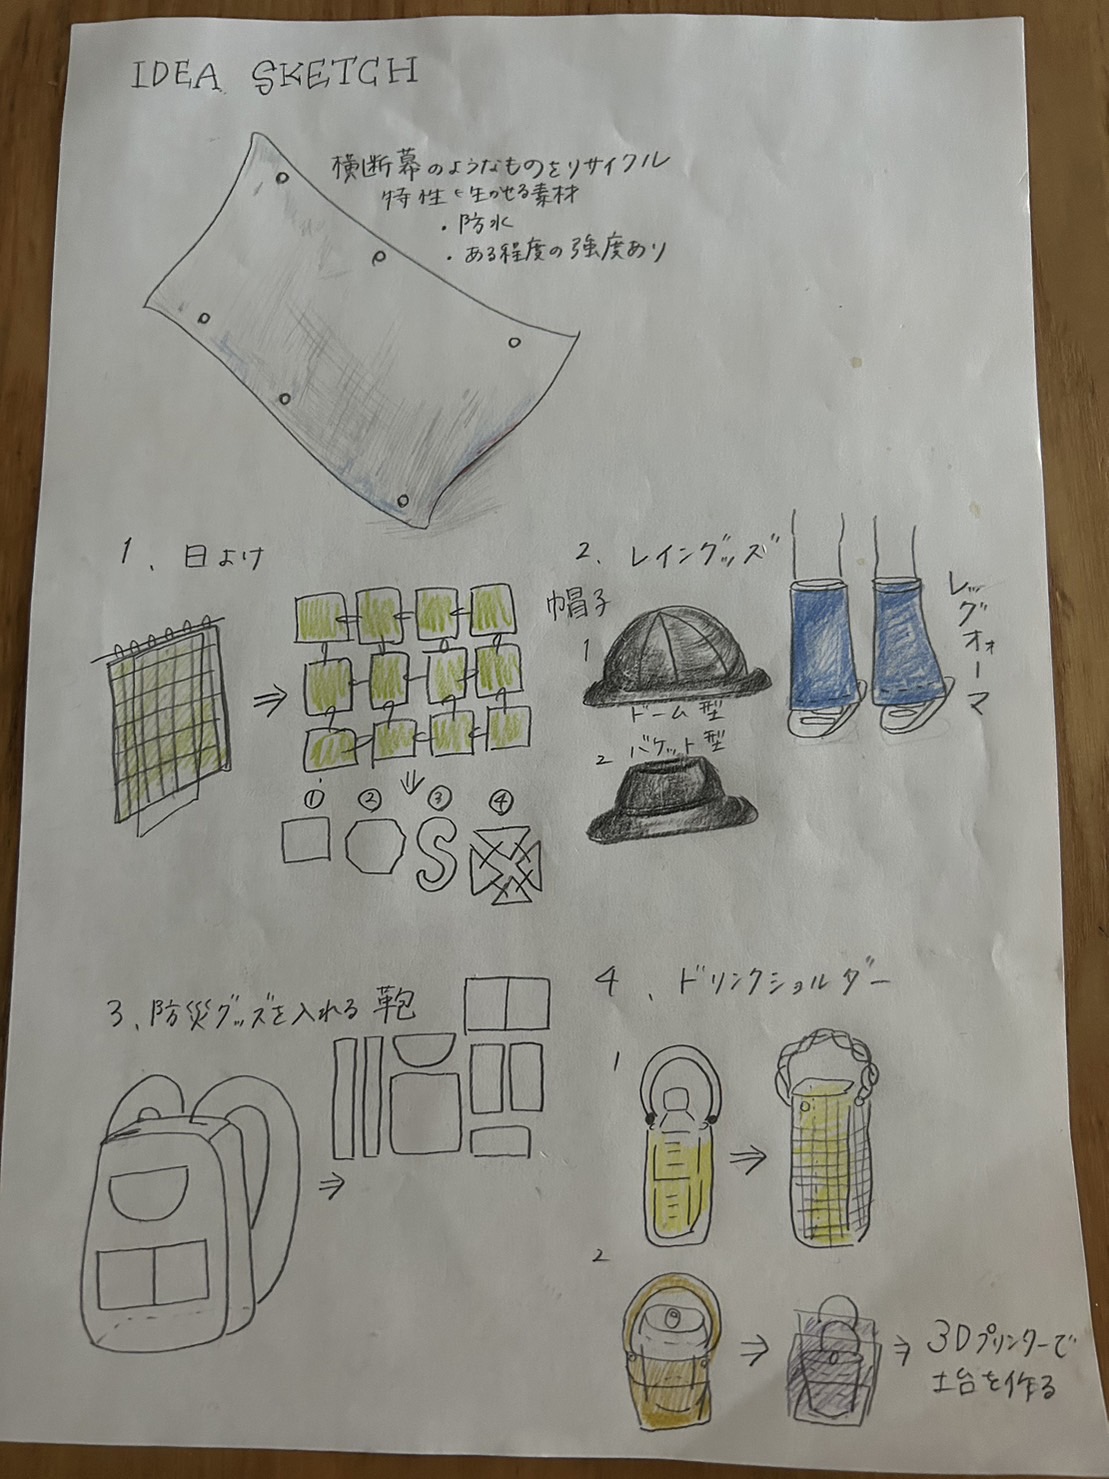 IDEA SKETCH
横断幕のようなものをリサイクル
特性を生かせる素材
・防水
・ある程度の強度あり
1、日よけ
① ② ③ ④
2、レイングッズ
帽子
1
ドーム型
2 バケット型
レッグウォーマ
3、防災グッズを入れる鞄
4、ドリンクショルダー
1
2
3Dプリンターで
土台を作る